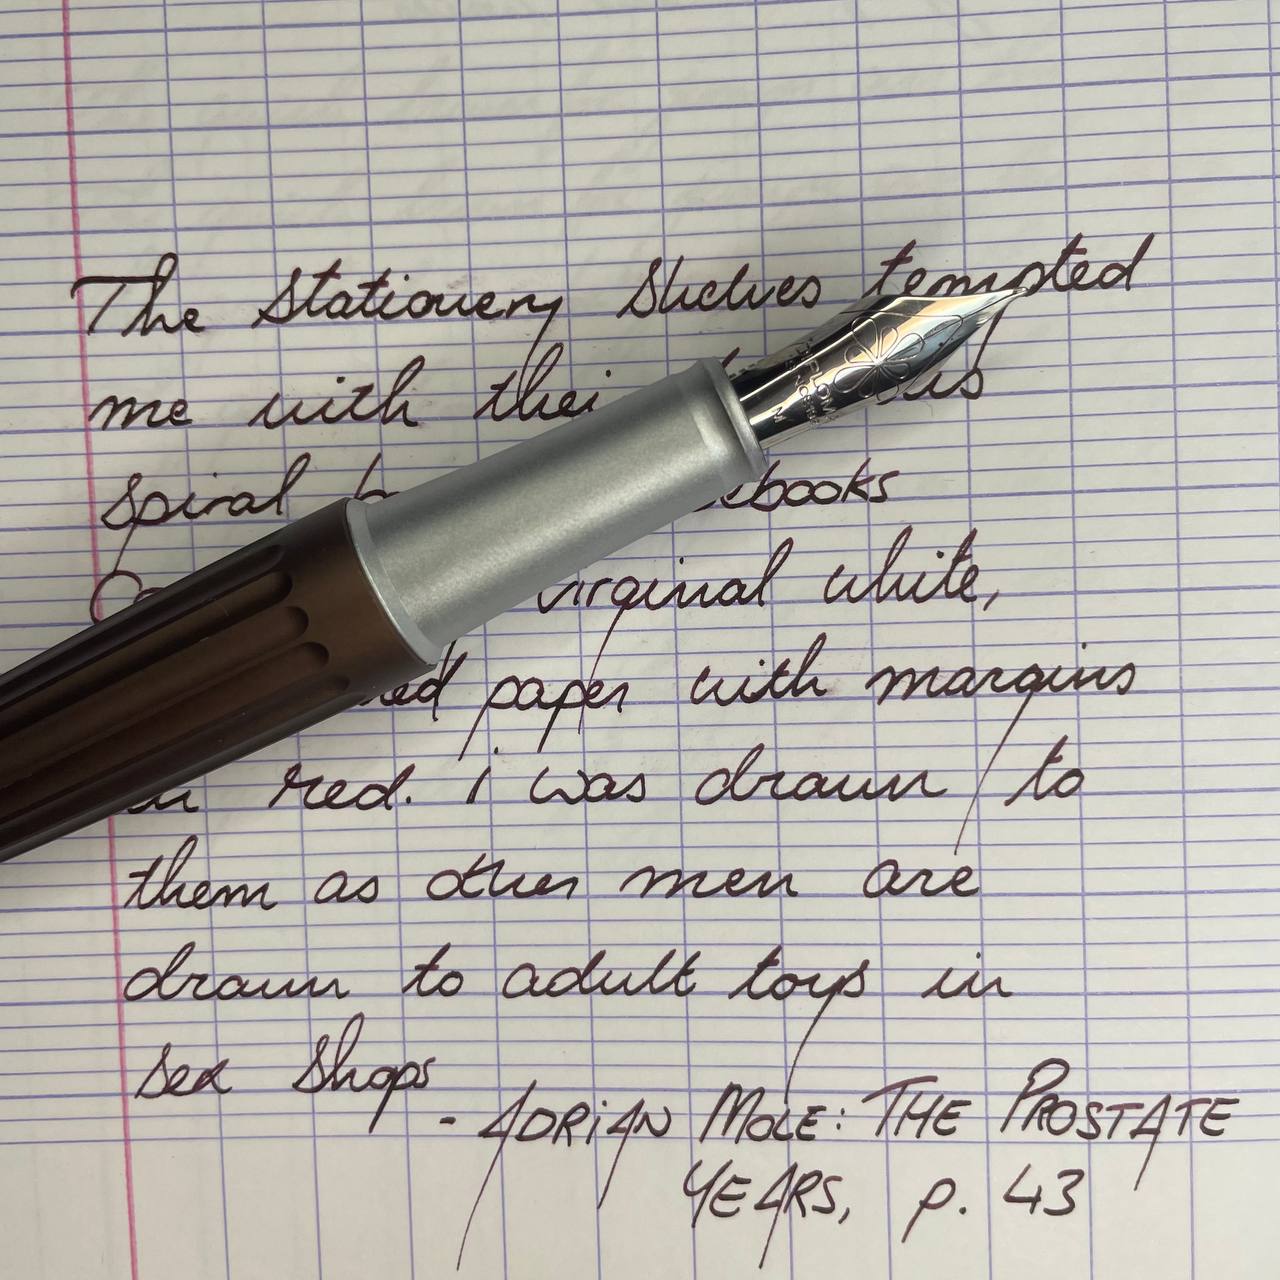 The Stationery Shelves tempted
me with
spiral
virginal white,
paper with margins
in red. i was drawn to
them as other men are
drawn to adult toys in
sex shops
- ADRiAN MOLE: THE PROSTATE
YEARS, p. 43
M